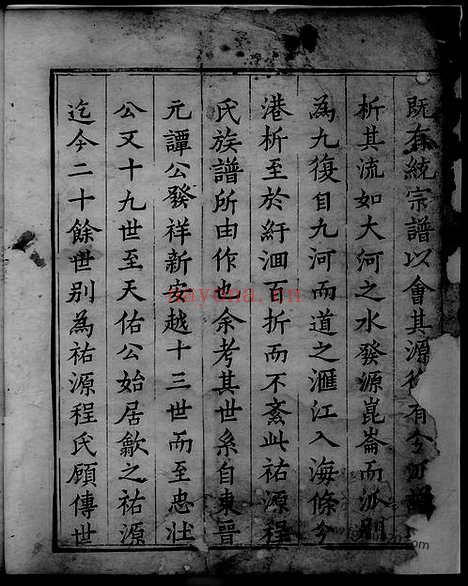 既有統宗譜以會其源復有今派譜
析其流如大河之水發源崑崙而泒別
為九復自九河而道之滙江入海條分
港析至於紆洄百折而不紊此祐源程
氏族譜所由作也余考其世系自東晉
元譚公發祥新安越十三世而至忠壯
公又十九世至天佑公始居歙之祐源
迄今二十餘世別為祐源程氏顧傳世